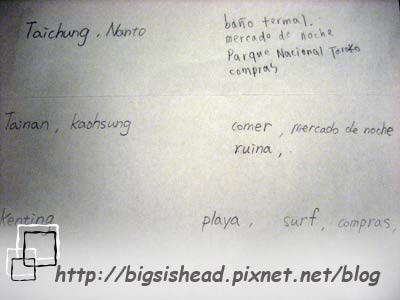 Taichung, Nanto
baño termal.
mercado de noche
Parque Nacional Taroko
compras
Tainan, kaohsung
comer, mercado de noche
ruina,
Kenting
playa, surf, compras,
http://bigsishead.pixnet.net/blog